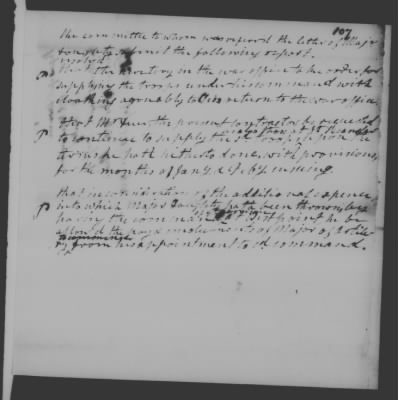 107
The committee to whom was referred the letter of Major
Doughty submit the following report.
resolved
That the Secretary in the war office take order for
supplying the troops under his command with
cloathing agreably to his return to the war office
That Mr the present contractor be requested
to continue to supply the sd troops upon the
terms he hath hitherto done, with provisions,
for the months of Jany & Feby ensuing
that in consideration of the additional expence
into which Major Doughty hath been thrown by
having the command at West point he be
allowed the pay & emoluments of Major of Artille
ry from his appointment to sd command.